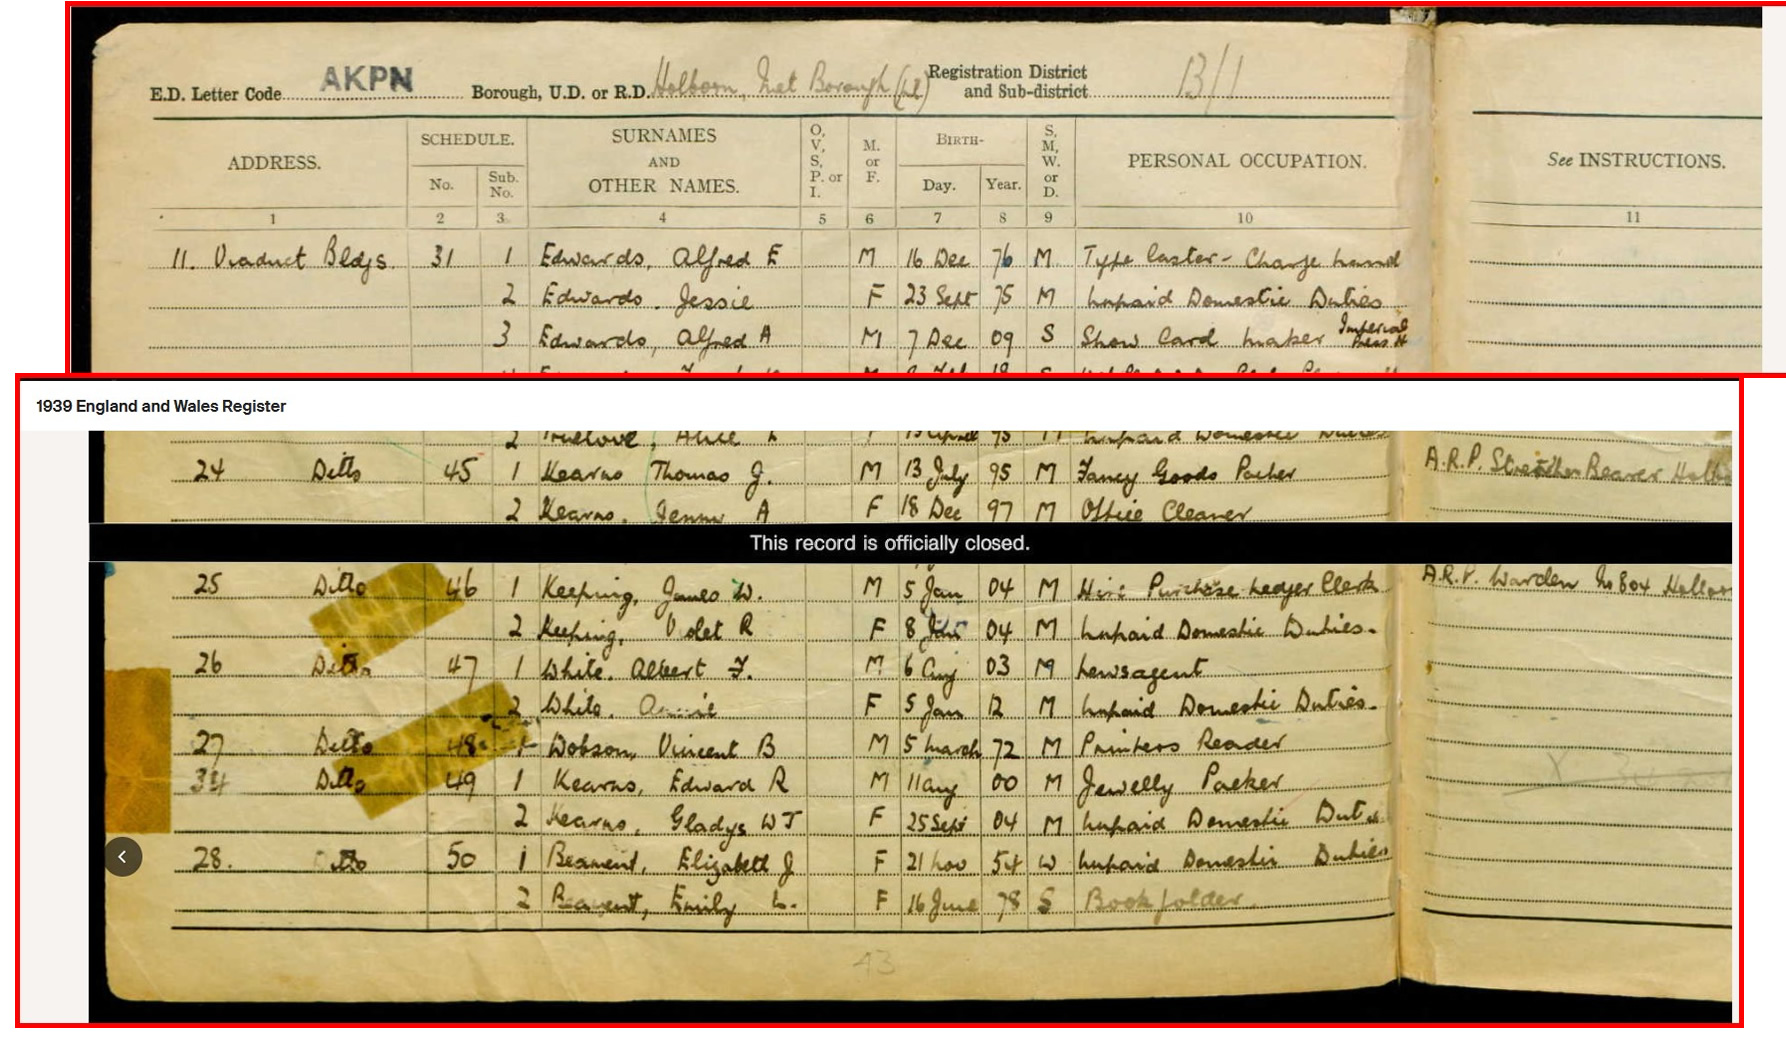 E.D. Letter Code AKPN Borough, U.D. or R.D. Holborn, Met Borough Registration District and Sub-district 13/1
ADDRESS. SCHEDULE. No. Sub. No. SURNAMES AND OTHER NAMES. O, V, S, P. or I. M. or F. BIRTH- Day. Year. S, M, W. or D. PERSONAL OCCUPATION. See INSTRUCTIONS.
1 2 3 4 5 6 7 8 9 10 11
11. Viaduct Bldgs. 31 1 Edwards, Alfred E M 16 Dec 76 M Type Caster - Charge hand
2 Edwards. Jessie F 23 Sept 75 M Unpaid Domestic Duties
3 Edwards, Alfred A M 7 Dec 09 S Show Card Maker Imperial Press
1939 England and Wales Register
2 Truelove, Alice L Unpaid Domestic Duties
24 Ditto 45 1 Kearns Thomas J. M 13 July 95 M Fancy Goods Packer A.R.P. Stretcher Bearer
2 Kearns, Jenny A F 18 Dec 97 M Office Cleaner
This record is officially closed.
25 Ditto 46 1 Keeping, James W. M 5 Jan 04 M Hire Purchase Ledger Clerk A.R.P. Warden No 804
2 Keeping, Violet R F 8 04 M Unpaid Domestic Duties.
26 Ditto 47 1 White. Albert F. M 6 Aug 03 M Newsagent
2 White. Annie F 5 Jan 12 M Unpaid Domestic Duties.
27 Ditto 48 1 Dobson, Vincent B M 5 March 72 M Printers Reader
34 Ditto 49 1 Kearns, Edward R M 11 Aug 00 M Jewelly Packer
2 Kearns, Gladys W J F 25 Sept 04 M Unpaid Domestic Duties
28. Ditto 50 1 Beament, Elizabeth J F 21 Nov 54 W Unpaid Domestic Duties
2 Beament, Emily L. F 16 June 78 S Bookfolder.
43